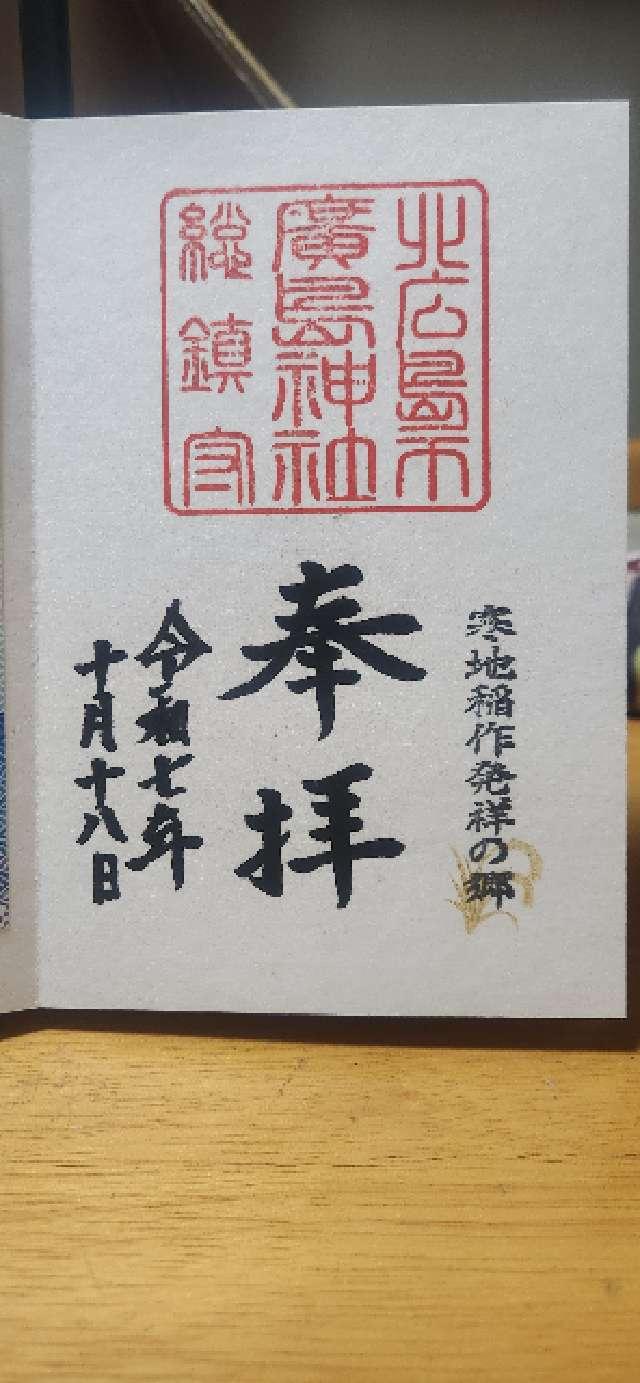 北広島市
廣島神社
総鎮守
寒地稲作発祥の郷
奉拝
令和七年
十月十八日